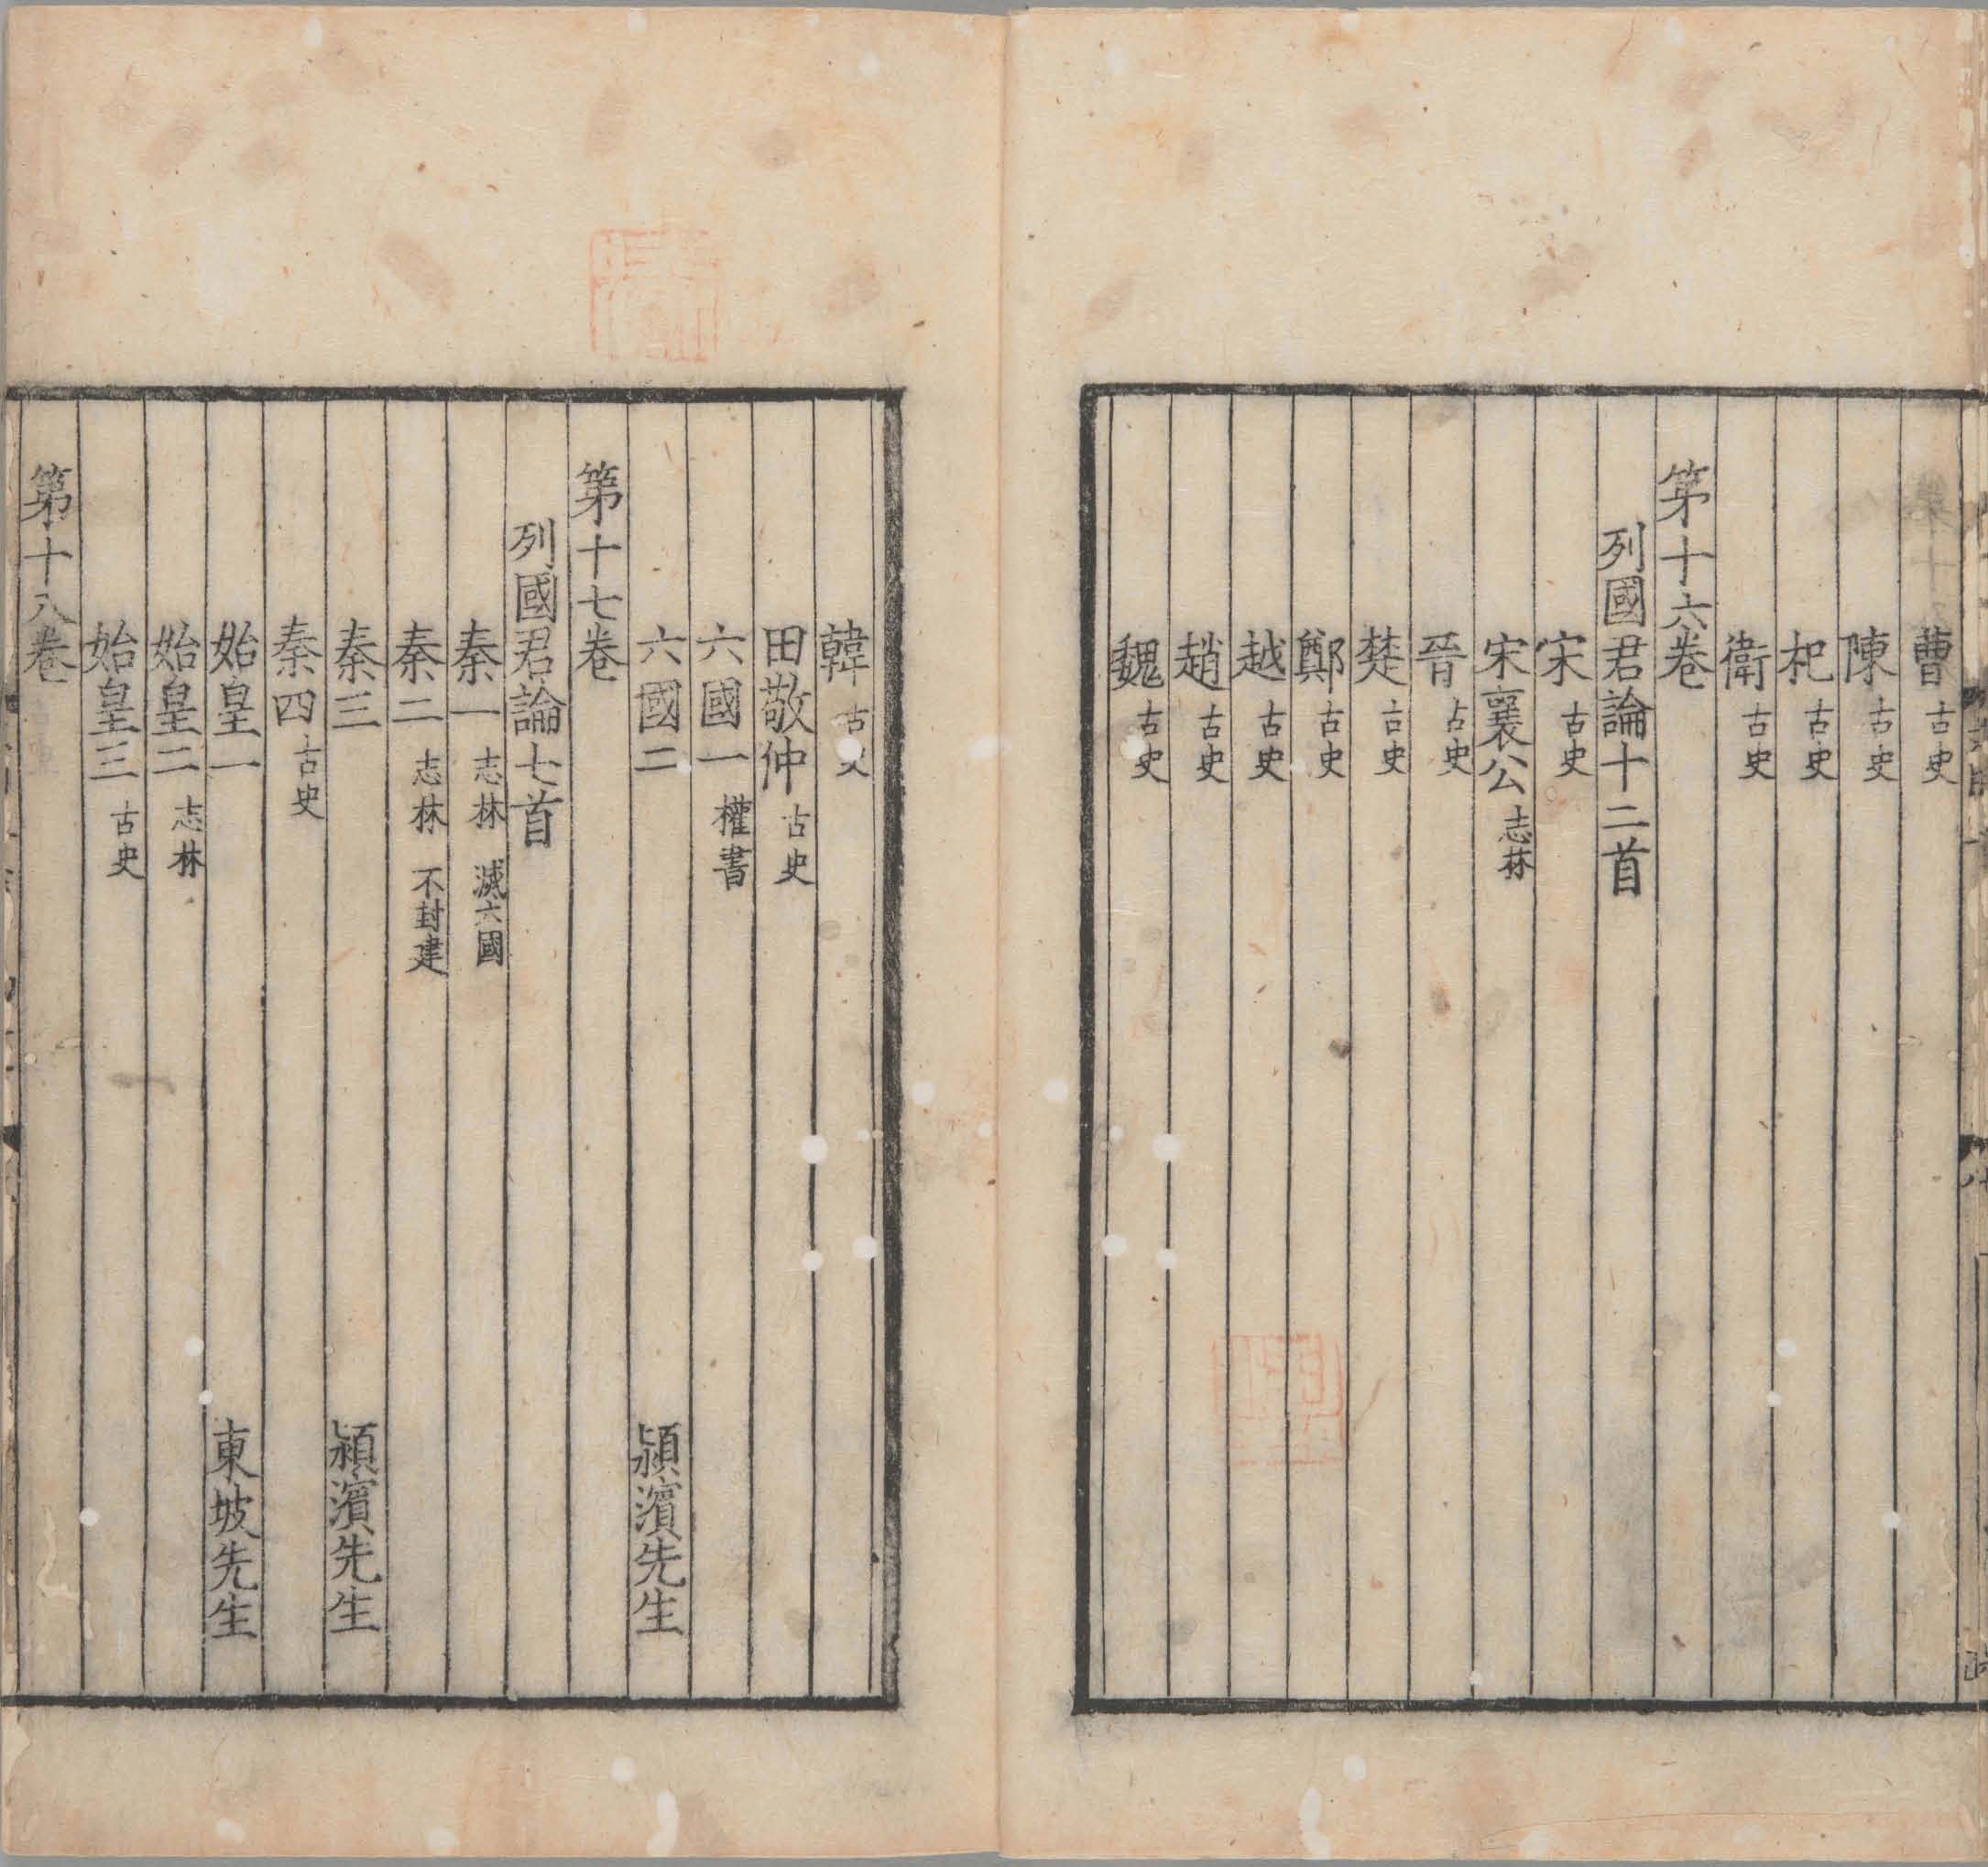 曹 古史
陳 古史
杞 古史
衛 古史
第十六卷
列國君論十二首
宋 古史
宋襄公 志林
晉 古史
楚 古史
鄭 古史
越 古史
趙 古史
魏 古史
韓 古史
田敬仲 古史
六國一 權書
六國二 潁濱先生
第十七卷
列國君論七首
秦一 志林 滅六國
秦二 志林 不封建
秦三 潁濱先生
秦四 古史
始皇一 東坡先生
始皇二 志林
始皇三 古史
第十八卷